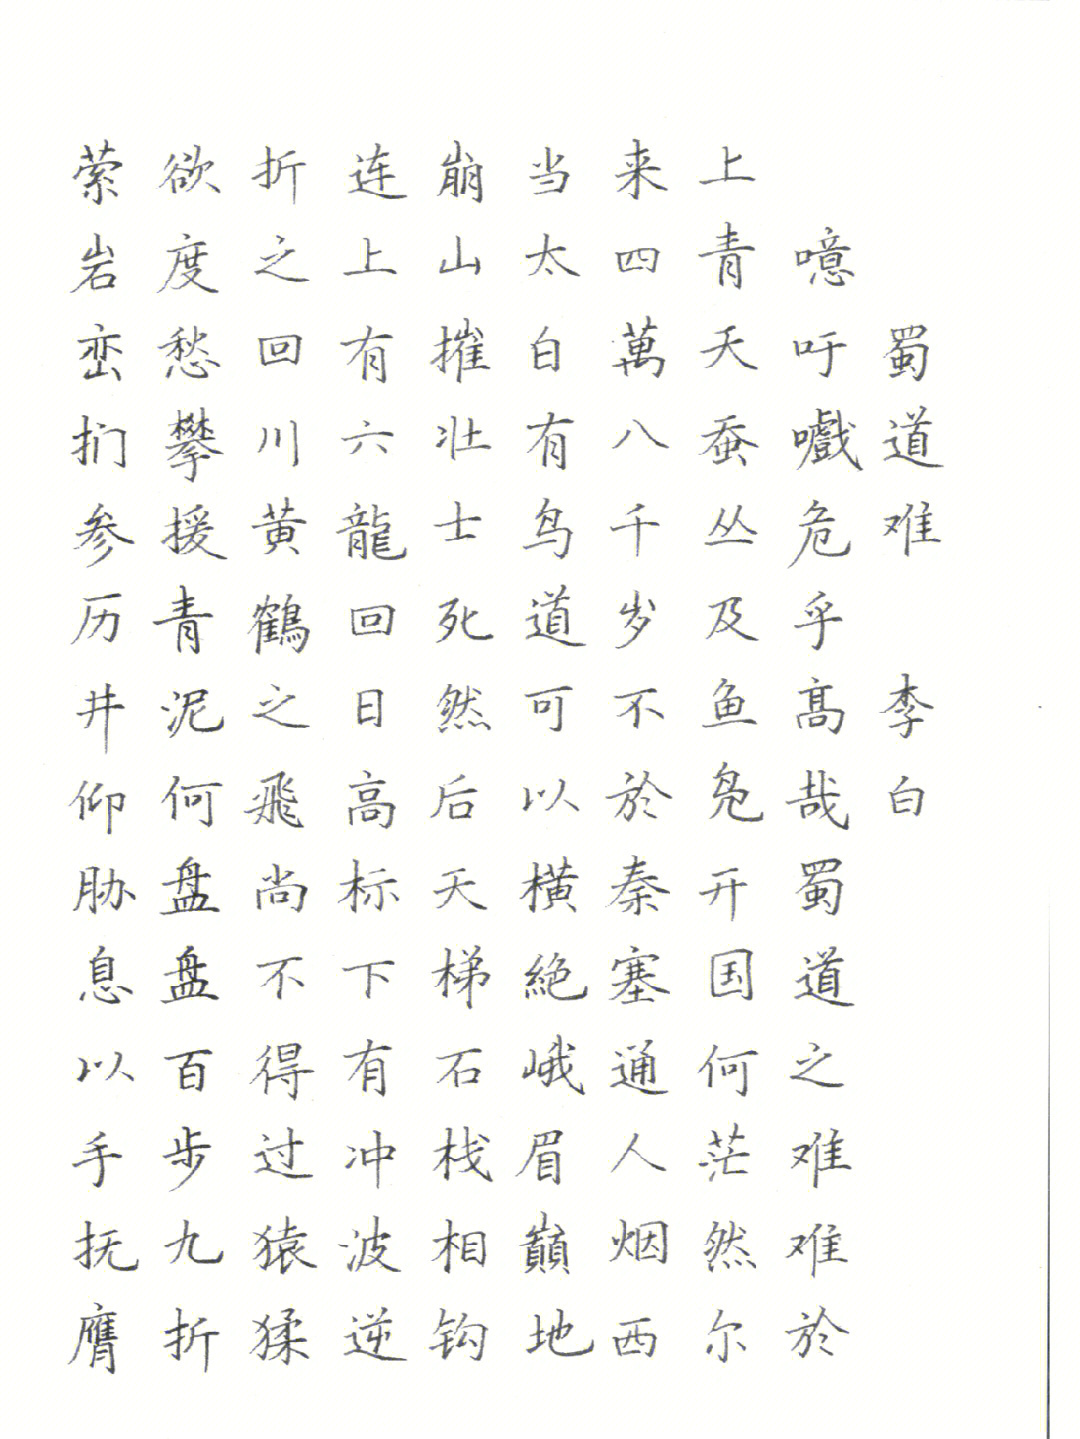 蜀道难 李白
噫吁嚱危乎高哉蜀道之难难於
上青天蚕丛及鱼凫开国何茫然尔
来四萬八千岁不於秦塞通人烟西
当太白有鸟道可以横絶峨眉巔地
崩山摧壮士死然后天梯石栈相钩
连上有六龍回日高标下有冲波逆
折之回川黄鶴之飛尚不得过猿猱
欲度愁攀援青泥何盘盘百步九折
萦岩峦扪参历井仰胁息以手抚膺